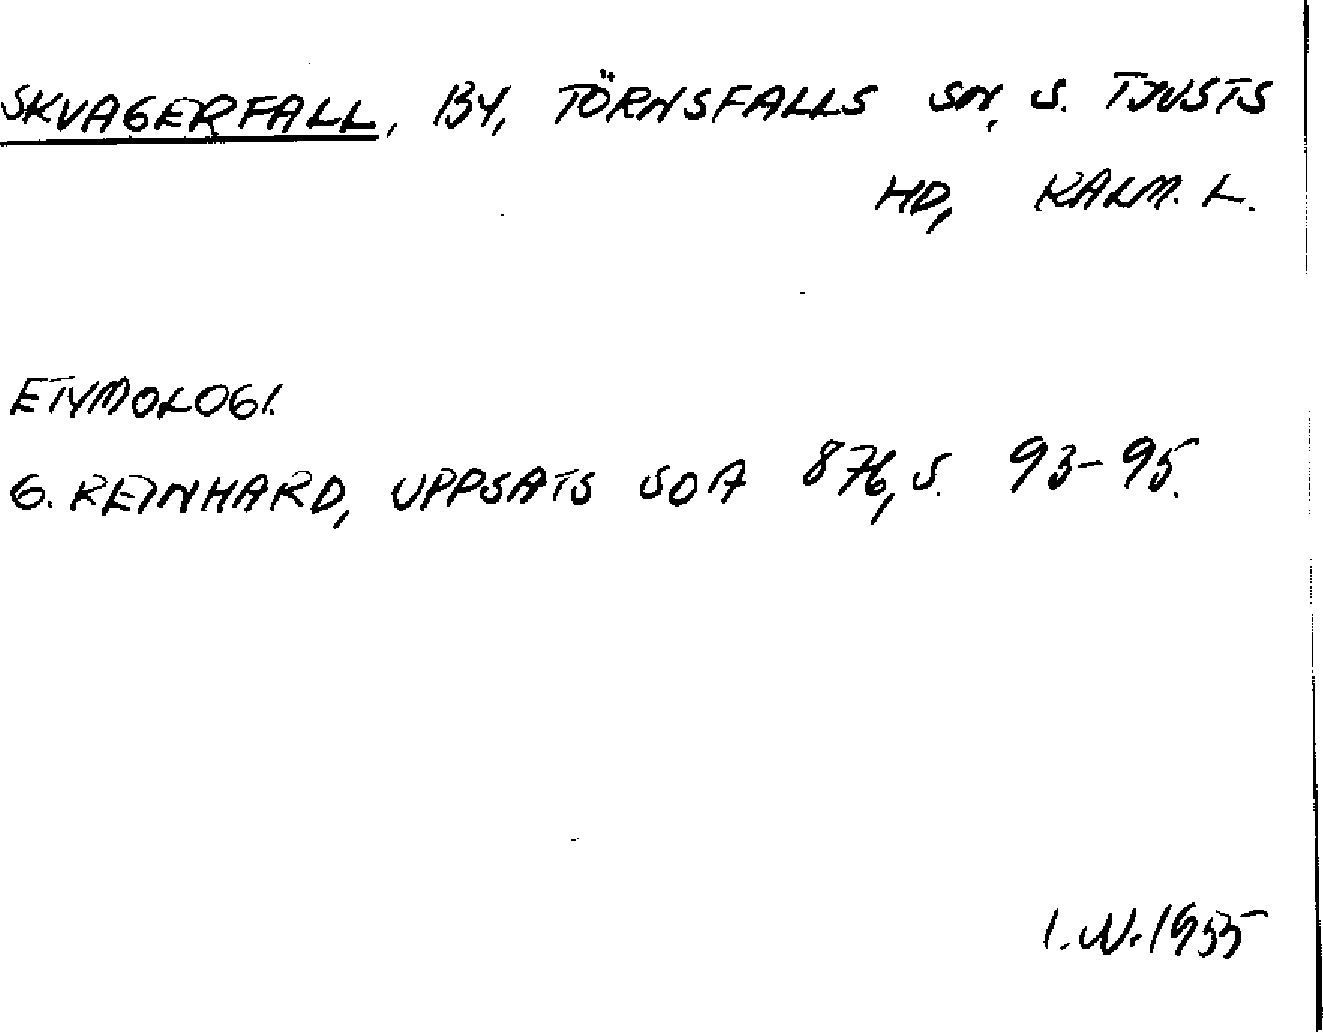 SKVAGERFALL, BY, TÖRNSFALLS SN, S. TJUSTS
HD, KALM. L.
ETYMOLOGI.
G. REINHARD, UPPSATS SOA 876, S. 93-95.
I.N. 1955